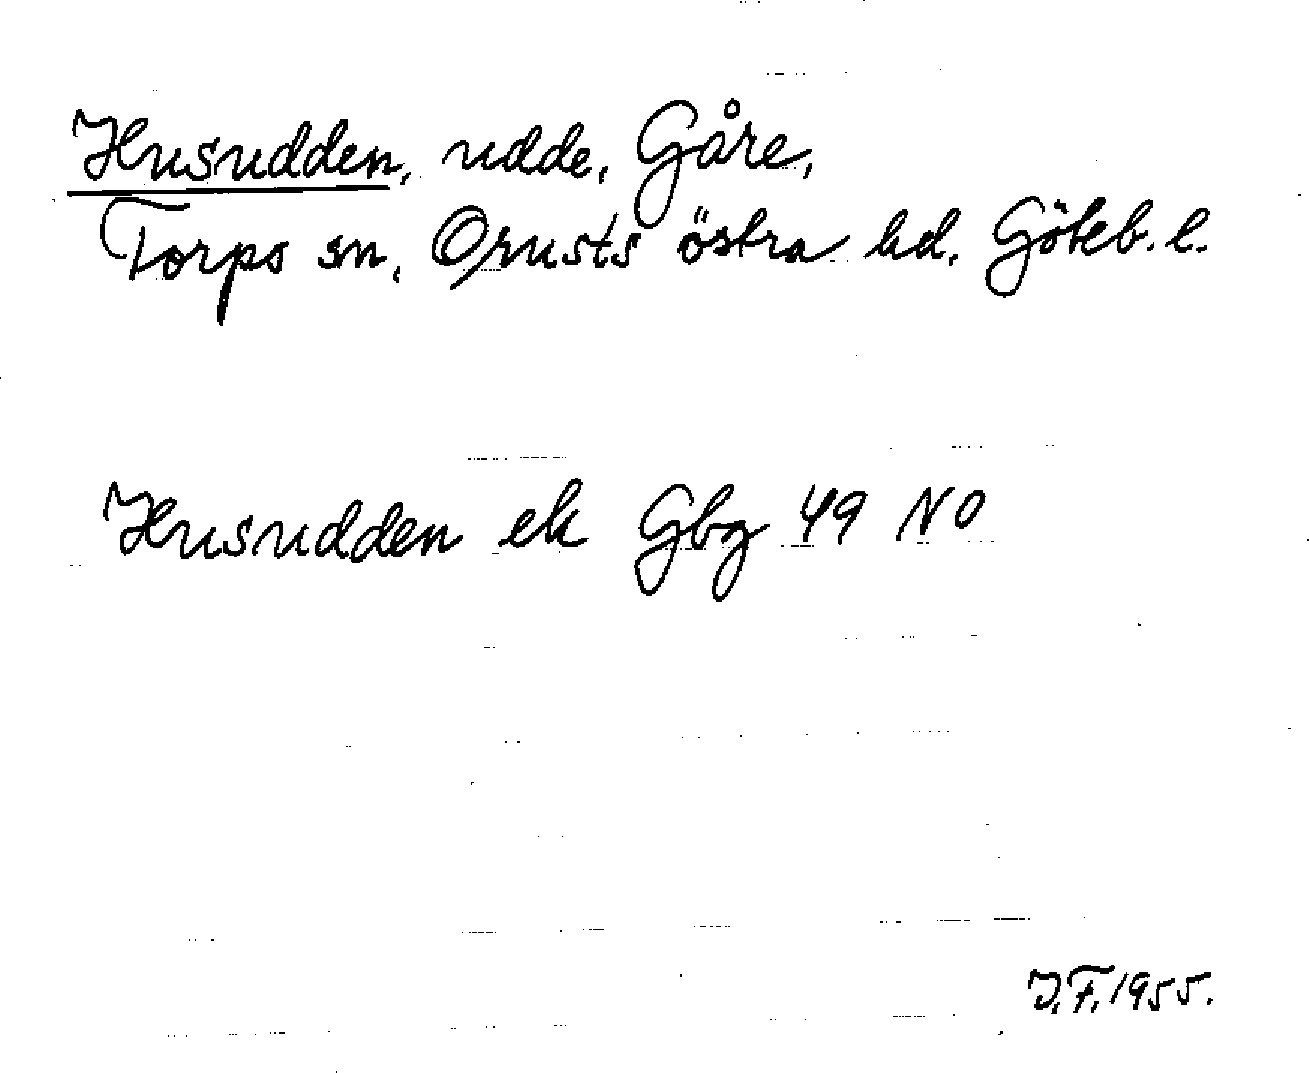 Husudden, udde, Gåre,
Torps sn, Orusts östra hd. Göteb. l.
Husudden ek Gbg 49 NO
J.F. 1955.